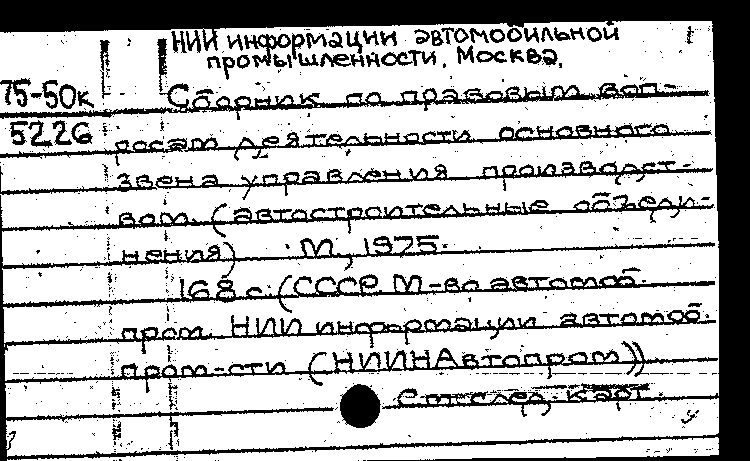 НИИ информации автомобильной
промышленности, Москва.
75-50к
5226
Сборник по правовым воп-
росам деятельности основного
звена управления производст-
вом. (автостроительные объеди-
нения) М., 1975.
168 с. (СССР. М-во автомоб.
пром. НИИ информации автомоб.
пром-сти (НИИНАвтопром))
См. след. карт.